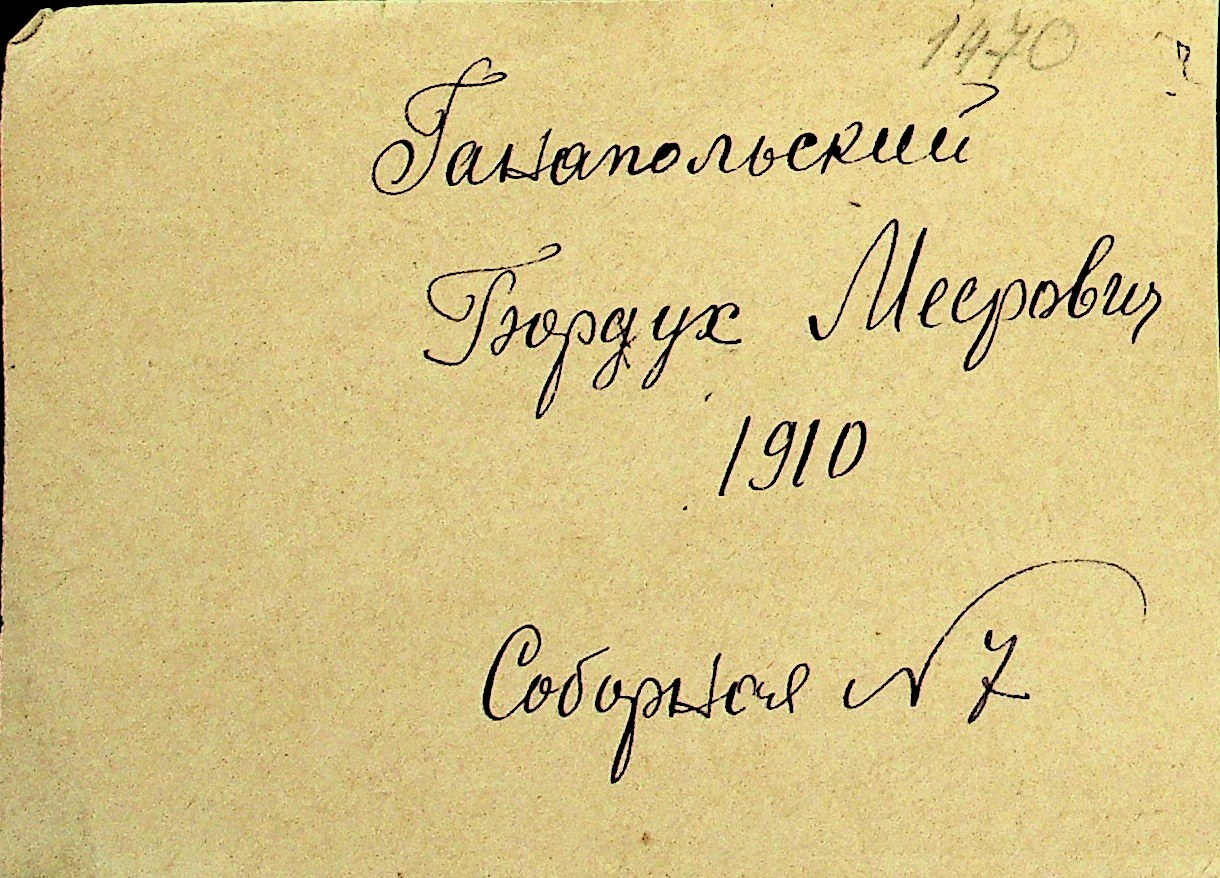 1470
Ганапольский
Бордух Меерович
1910
Соборная N 7